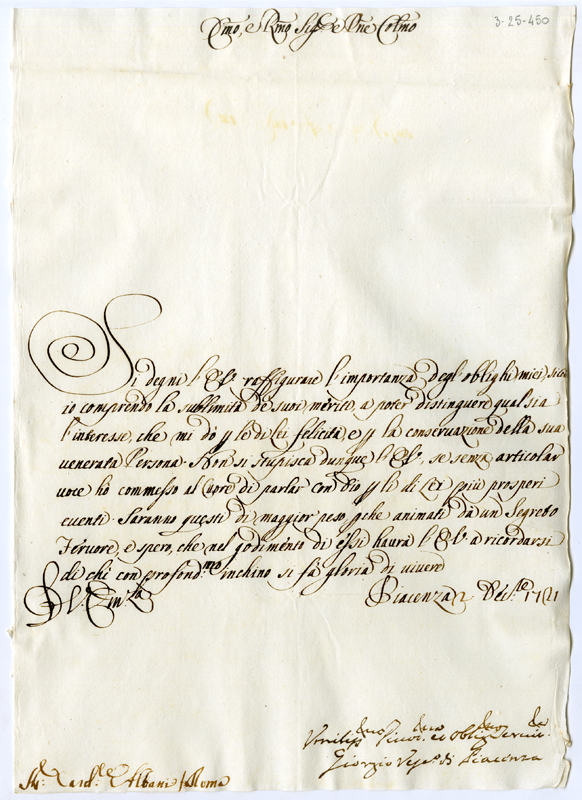 3-25-450
Emo, e Rmo Sigr e Pne Colmo
Si degni l'E.V. raffigurare l'importanza degl'oblighi miei, siccome
io comprendo la sublimità de suoi meriti, a poter distinguere qual sia
l'interesse, che mi dò p le di lei felicità, e p la conservazione della sua
venerata Persona. Non si stupisca dunque l'E.V., se senza articolar
voce hò commesso al Cuore di parlar con Dio p li di Lei più prosperi
eventi. Saranno questi di maggior peso, pche animati dà un Segreto
Fervore, e spero, che nel godimento di essi havrà l'E.V. a ricordarsi
di chi con profondmo inchino si fà gloria di vivere
Di V. Emza
Piacenza 2 Decre 1721
Umiliss Divot et Oblig Servit
Giorgio Vesc di Piacenza
Sr Cardle Albani / Roma